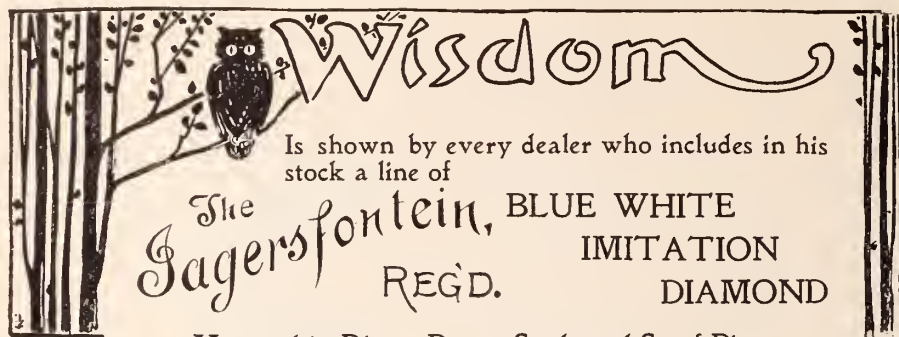 Wisdom
Is shown by every dealer who includes in his
stock a line of
The
Jagersfontein, BLUE WHITE
IMITATION
REG'D. DIAMOND